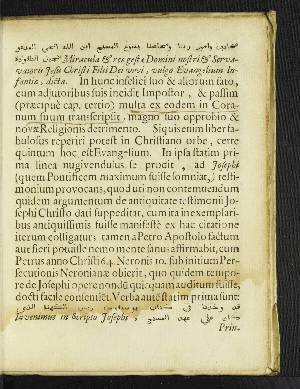 Miracula & res gesta Domini nostri & Serva-
vatoris Jesu Christi Filii Dei vivi, vulgo Evangelium In-
fantiæ, dicta. In hunc infelici suo & aliorum fato,
cum adjutoribus suis incidit Impostor, & passim
(præcipuè cap. tertio) multa ex eodem in Cora-
num suum transcripsit, magno suo opprobio &
novæ Religionis detrimento. Si quis enim liber fa-
bulosus reperiri potest in Christiano orbe, certe
quintum hoc est Evangelium. In ipsa statim pri-
ma linea nugivendulus se prodit, ad Josephi
(quem Pontificem maximum fuisse somniat,) testi-
monium provocans, quod uti non contemnendum
quidem argumentum de antiquitate testimonii Jo-
sephi Christo dati suppeditat, cum ita in exemplari-
bus antiquissimis fuisse manifestè ex hac citatione
iterum colligatur: tamen a Petro Apostolo factum
aut fieri potuisse nemo mente sanus affirmabit, cum
Petrus anno Christi 64. Neronis 10. sub initium Per-
secutionis Neronianæ obierit, quo quidem tempo-
re de Josephi opere nondū quicquam auditum fuisse,
docti facile consentiēt. Verba autē statim prima sunt:
Invenimus in Scripto Josephi,
Prin-